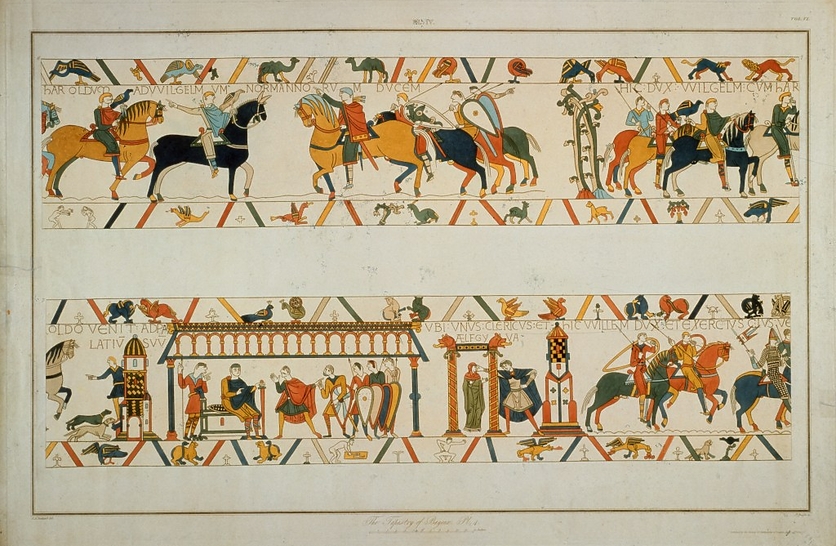 HAROLDVO: ADVVILGELMVM: NORMANNORVM DVCEM
HIC: DVX: VVILGELM: CVM hAR
OLDO VENIT: AD PA
LATIV SVV
VBI: VNVS: CLERICVS: ET:
ÆLFGYVA
hIC VVILLEM DVX: ET EXERCITVS: EIVS: VE
The Tapestry of Bayeux, Pl.